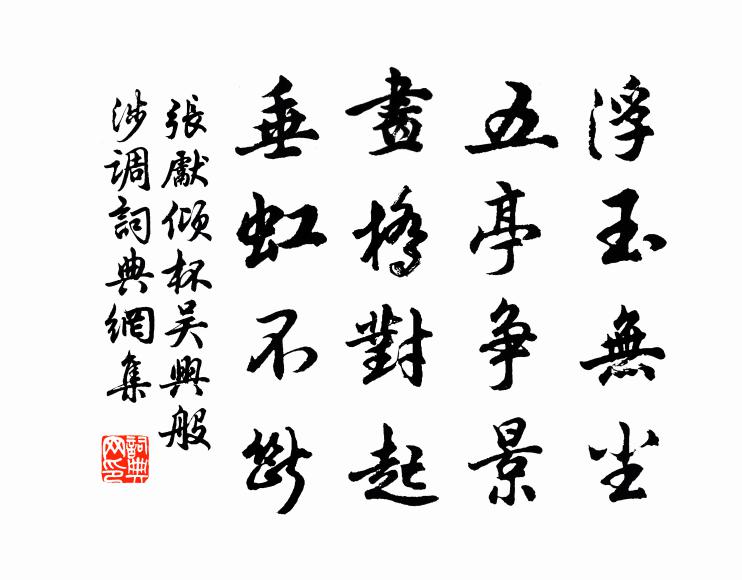 浮玉無塵
五亭争景
畫橋對起
垂虹不斷
張獻傾杯吴興般
涉调詞典網集
詞典網印